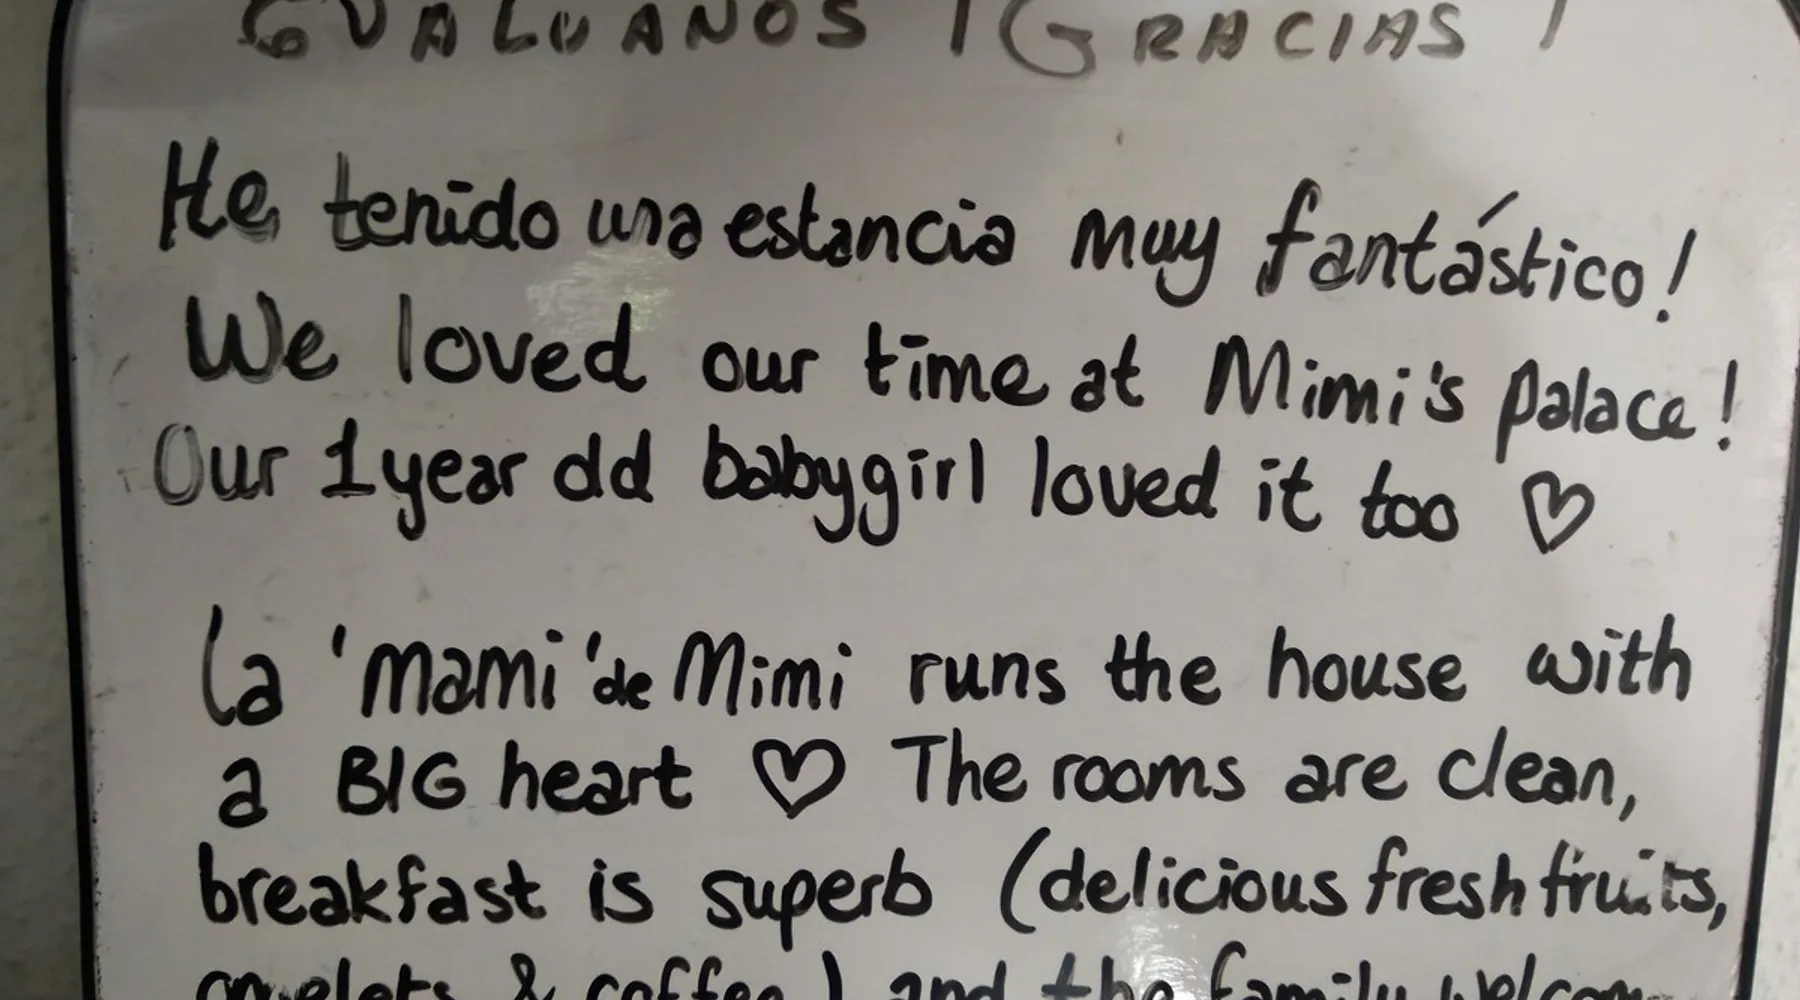 ¡GRACIAS!
He tenido una estancia muy fantástico!
We loved our time at Mimi's palace!
Our 1 year old babygirl loved it too ♡
La 'mami' de Mimi runs the house with
a BIG heart ♡ The rooms are clean,
breakfast is superb (delicious fresh fruits,
omelets & coffee) and the family welcom